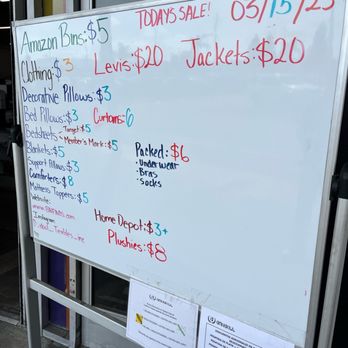 TODAYS SALE! 03/15/25
Amazon Bins:$5
Clothing:$3 Levis:$20 Jackets:$20
Decorative Pillows:$3
Bed Pillows:$3 Curtains:6
Bedsheets - Target:$5
- Member's Mark:$5
Blankets:$5
Packed:$6
• Underwear
• Bras
• Socks
Support Pillows:$3
Comforters:$8
Mattress Toppers:$5
Website:
Instagram:
Home Depot:$3+
Plushies:$8